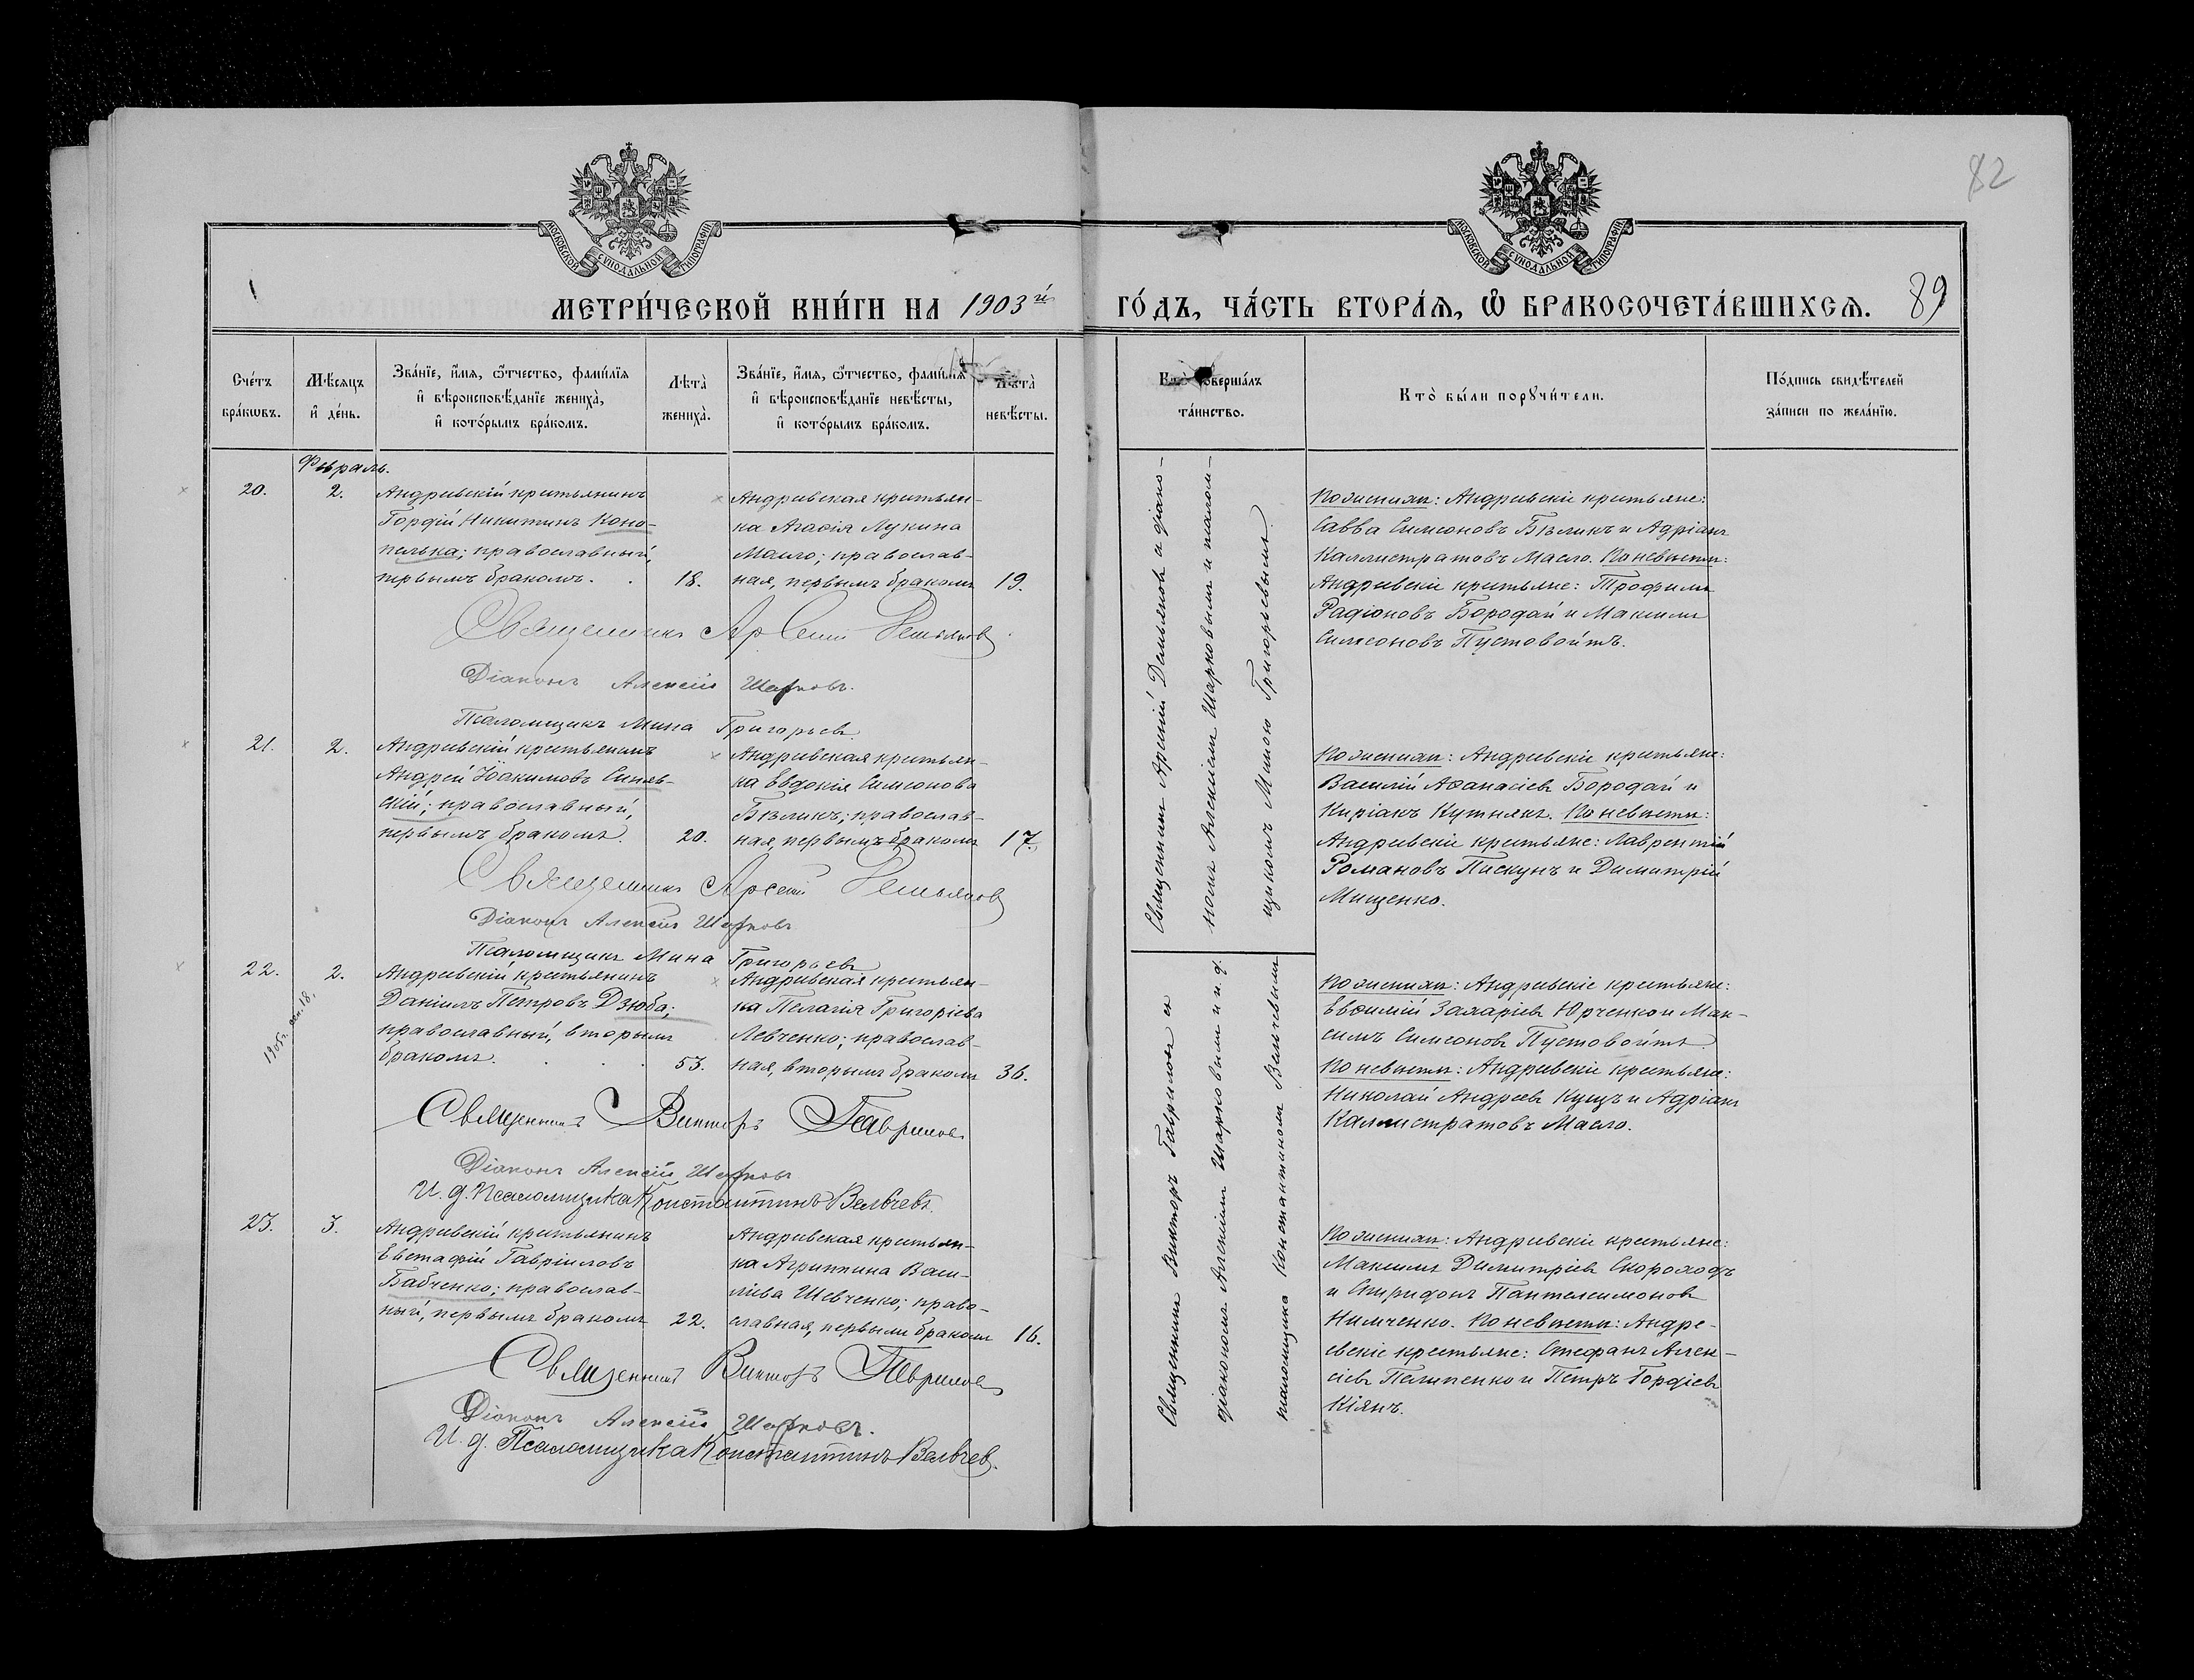 82
МОСКОВСКОЙ СѴНОДАЛЬНОЙ ТИПОГРАФІИ
МОСКОВСКОЙ СѴНОДАЛЬНОЙ ТИПОГРАФІИ
МЕТРИ́ЧЕСКОЙ КНИ́ГИ НА 1903й
ГО́ДЪ, ЧА́СТЬ ВТОРА́Ѧ, Ѽ БРАКОСОЧЕТА́ВШИХСѦ. 89
Сче́тъ бра́кѡвъ.
Мѣ́сяцъ и҆ де́нь.
Зва́нїе, и҆́мѧ, ѻ҆́тчество, фами́лїѧ и҆ вѣроисповѣ́данїе жениха̀, и҆ кото́рымъ бра́комъ.
Лѣта̀ жениха̀.
Зва́нїе, и҆́мѧ, ѻ҆́тчество, фами́лїѧ и҆ вѣроисповѣ́данїе невѣ́сты, и҆ кото́рымъ бра́комъ.
Лѣта̀ невѣ́сты.
Кто̀ соверша́лъ та́инство.
Кто̀ бы́ли порꙋчи́тели.
По́дпись свидѣ́телей за́писи по жела́нїю.
Февраль.
20.
2.
Андреевскій крестьянинъ
Гордій Никитинъ Коно-
пелька; православный,
первымъ бракомъ.
18.
Андреевская крестьян-
ка Агафія Лукина
Масло; православ-
ная, первымъ бракомъ
19.
Священникъ Арсеній Демьянов
Діаконъ Алексій Шарковъ.
Псаломщикъ Мина Григорьевъ
21.
2.
Андреевскій крестьянинъ
Андрей Іоакимовъ Синяв-
скій; православный,
первымъ бракомъ.
20.
Андреевская крестьян-
ка Евдокія Симеонова
Бѣликъ; православ-
ная, первымъ бракомъ
17.
Священникъ Арсеній Демьянов
Діаконъ Алексій Шарковъ
Псаломщикъ Мина Григорьевъ
22.
2.
1905г. окт. 18.
Андреевскій крестьянинъ
Даніилъ Петровъ Дзюба;
православный, вторымъ
бракомъ.
53.
Андреевская крестьян-
ка Пелагія Григоріева
Левченко; православ-
ная, вторымъ бракомъ
36.
Священникъ Викторъ Гаврилов
Діаконъ Алексій Шарковъ
И. д. Псаломщика Константинъ Вельчевъ.
23.
3.
Андреевскій крестьянинъ
Евстафій Гавріиловъ
Бабченко; православ-
ный, первымъ бракомъ
22.
Андреевская крестьян-
ка Агриппина Васи-
ліева Шевченко; право-
славная, первымъ бракомъ
16.
Священникъ Викторъ Гаврилов
Діаконъ Алексій Шарковъ.
И. д. Псаломщика Константинъ Вельчев.
Священникъ Арсеній Демьяновъ с діако-
номъ Алексіемъ Шарковымъ и псалом-
щикомъ Миною Григорьевымъ.
Священникъ Викторъ Гавриловъ съ
діакономъ Алексіемъ Шарковымъ и и. д.
псаломщика Константиномъ Вельчевымъ
По женихѣ: Андреевскіе крестьяне:
Савва Симеоновъ Бѣликъ и Адріанъ
Каллистратовъ Масло. По невѣстѣ:
Андреевскіе крестьяне: Трофимъ
Радіоновъ Бородай и Максимъ
Симеоновъ Пустовойтъ.
По женихѣ: Андреевскіе крестьяне:
Василій Аѳанасіевъ Бородай и
Киріакъ Кутнякъ. По невѣстѣ:
Андреевскіе крестьяне: Лаврентій
Романовъ Пискунъ и Димитрій
Мищенко.
По женихѣ: Андреевскіе крестьяне:
Евѳимій Захаріевъ Юрченко и Мак-
симъ Симеоновъ Пустовойтъ.
По невѣстѣ: Андреевскіе крестьяне:
Николай Андреевъ Куцъ и Адріанъ
Каллистратовъ Масло.
По женихѣ: Андреевскіе крестьяне:
Максимъ Димитріевъ Скороходъ
и Спиридонъ Пантелеимоновъ
Нимченко. По невѣстѣ: Андре-
евскіе крестьяне: Стефанъ Алек-
сіевъ Пелипенко и Петръ Гордіевъ
Кіянъ.